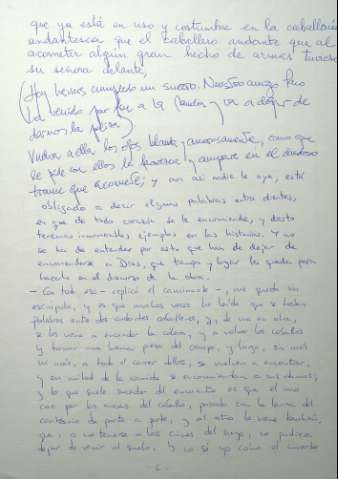 que ya está en uso y costumbre en la caballería
andantesca que el caballero andante que al
acometer algún gran hecho de armas tuviese
su señora delante,
(Hoy hemos cumplido un sueño. Nuestro amigo
ha venido por fin a la y va a dejar de
darnos la paliza)
vuelva a ella los ojos blanda y amorosamente, como que
le pide con ellos le favorezca y ampare en el dudoso
trance que acomete; y aun si nadie le oye, está
obligado a decir algunas palabras entre dientes,
en que de todo corazón se le encomiende, y desto
tenemos innumerables ejemplos en las historias. Y no
se ha de entender por esto que han de dejar de
encomendarse a Dios, que tiempo y lugar les queda para
hacerlo en el discurso de la obra.
- Con todo eso - replicó el caminante -, me queda un
escrúpulo, y es que muchas veces he leído que se traban
palabras entre dos andantes caballeros, y, de una en otra,
se les viene a encender la cólera, y a volver los caballos
y tomar una buena pieza del campo, y luego, sin más
ni más, a todo el correr dellos, se vuelven a encontrar,
y en mitad de la corrida se encomiendan a sus damas;
y lo que suele suceder del encuentro es que el uno
cae por las ancas del caballo, pasado con la lanza del
contrario de parte a parte, y al otro le viene también,
que, a no tenerse a las crines del suyo, no pudiera
dejar de venir al suelo. Y no sé yo cómo el muerto